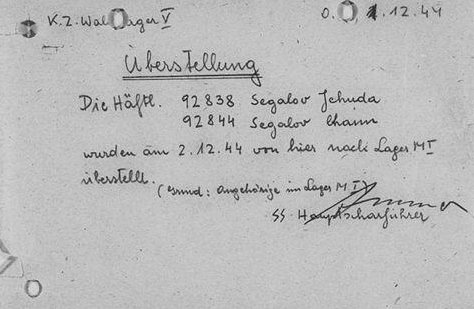 K.Z. Wal ager V O. 1.12.44
Überstellung
Die Häftl. 92838 Segalov Jehuda
92844 Segalov Chann
wurden am 2.12.44 von hier nach Lager M I
überstellt.
(Grund: Angehörige im Lager M I)
SS Hauptscharführer